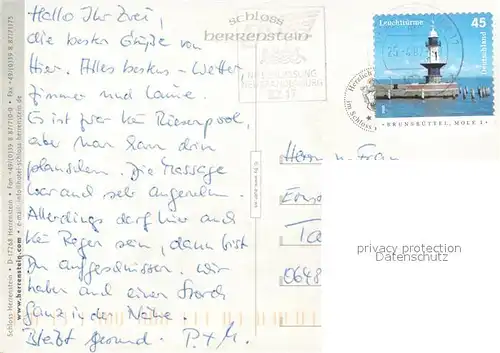 Hallo Ihr Zwei,
die besten Grüße von
hier. Alles bestens - Wetter
Zimmer und Laune.
Es ist zwar kein Riesenpool,
aber man kann drin
planschen. Die Massage
war auch sehr angenehm.
Allerdings darf hier auch
kein Regen sein, dann bist
Du aufgeschmissen. Wir
haben auch einen Storch
ganz in der Nähe.
Bleibt gesund. P. + M.
Schloss Herrenstein • D-17268 Herrenstein • Fon +49/(0)39 8 87/71-0 • Fax +49/(0)39 8 87/71 75
www.herrenstein.com • e-mail: info@hotel-schloss-herrenstein.de
schloss
herrenstein
Leuchttürme
45
Deutschland
BRUNSBÜTTEL, MOLE 1
Herrn u. Frau
0648
privacy protection
Datenschutz